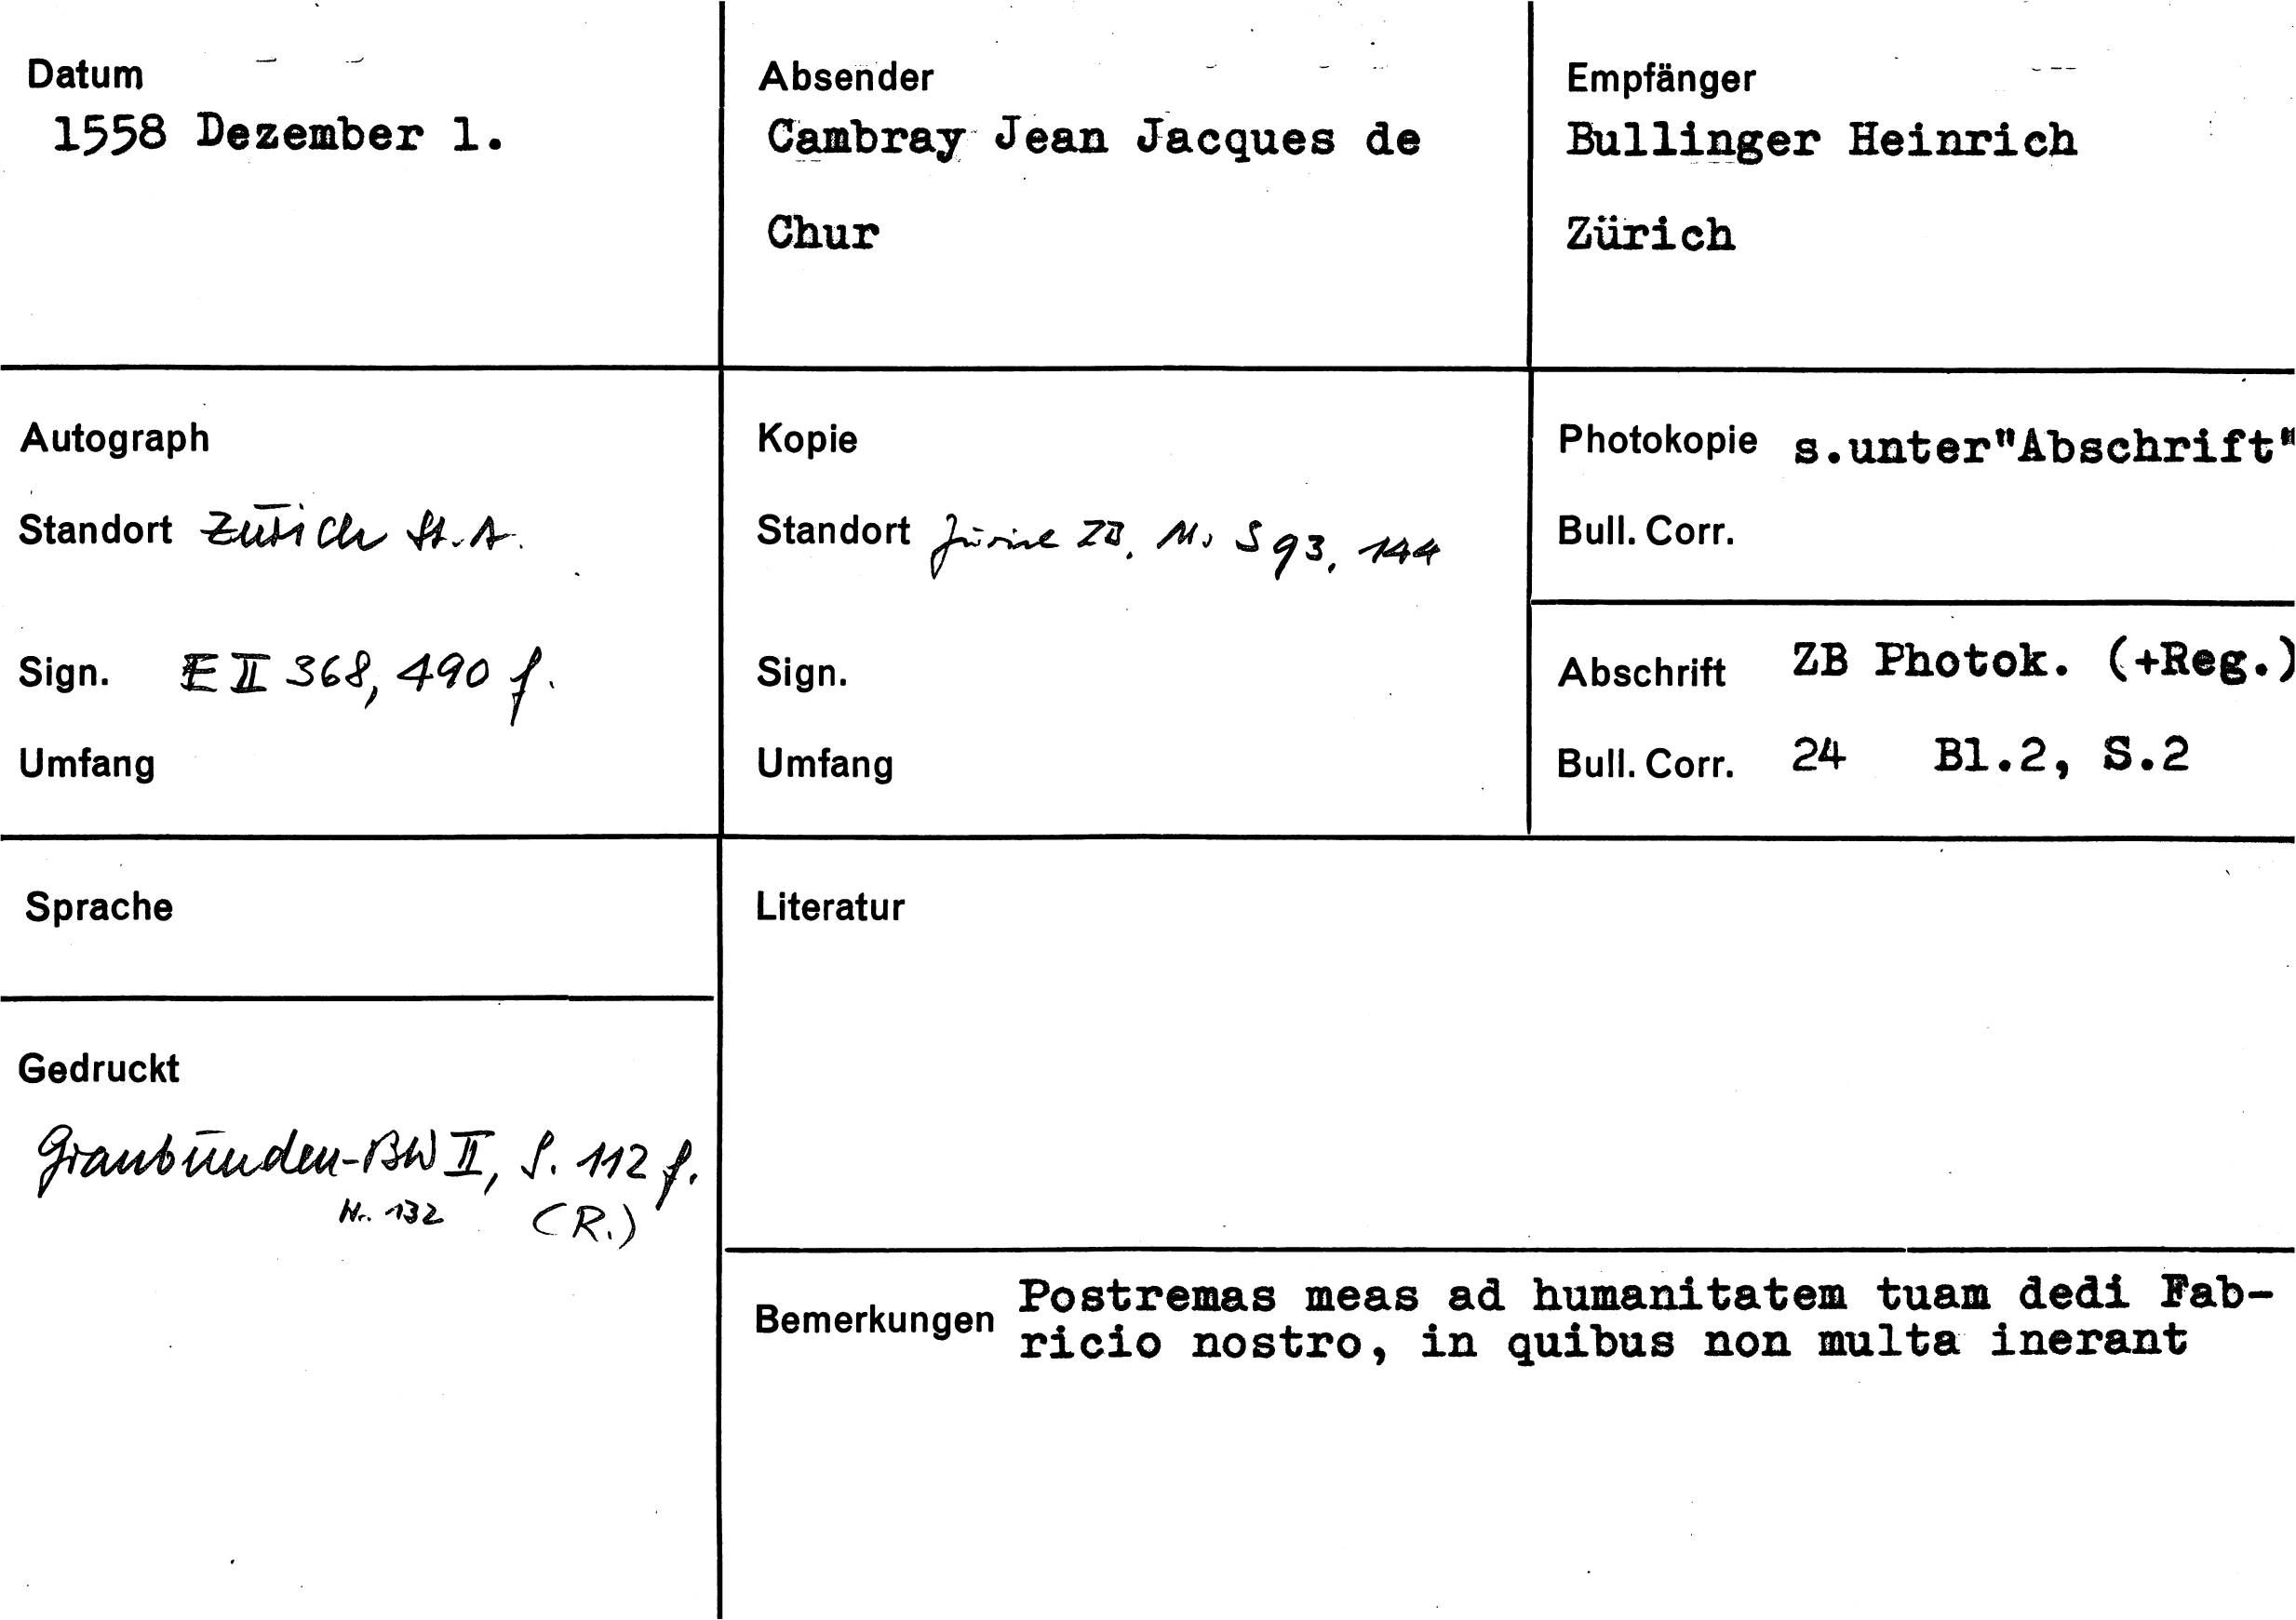 Datum
1558 Dezember 1.
Absender
Cambray Jean Jacques de
Chur
Empfänger
Bullinger Heinrich
Zürich
Autograph
Standort Zürich St.A.
Sign. E II 368, 490 f.
Umfang
Kopie
Standort Zürich ZB, Ms S 93, 144
Sign.
Umfang
Photokopie s.unter"Abschrift"
Bull. Corr.
Abschrift ZB Photok. (+Reg.)
Bull. Corr. 24 Bl.2, S.2
Sprache
Literatur
Gedruckt
Graubünden-BW II, S. 112 f.
Nr. 132 (R.)
Bemerkungen Postremas meas ad humanitatem tuam dedi Fab-
ricio nostro, in quibus non multa inerant